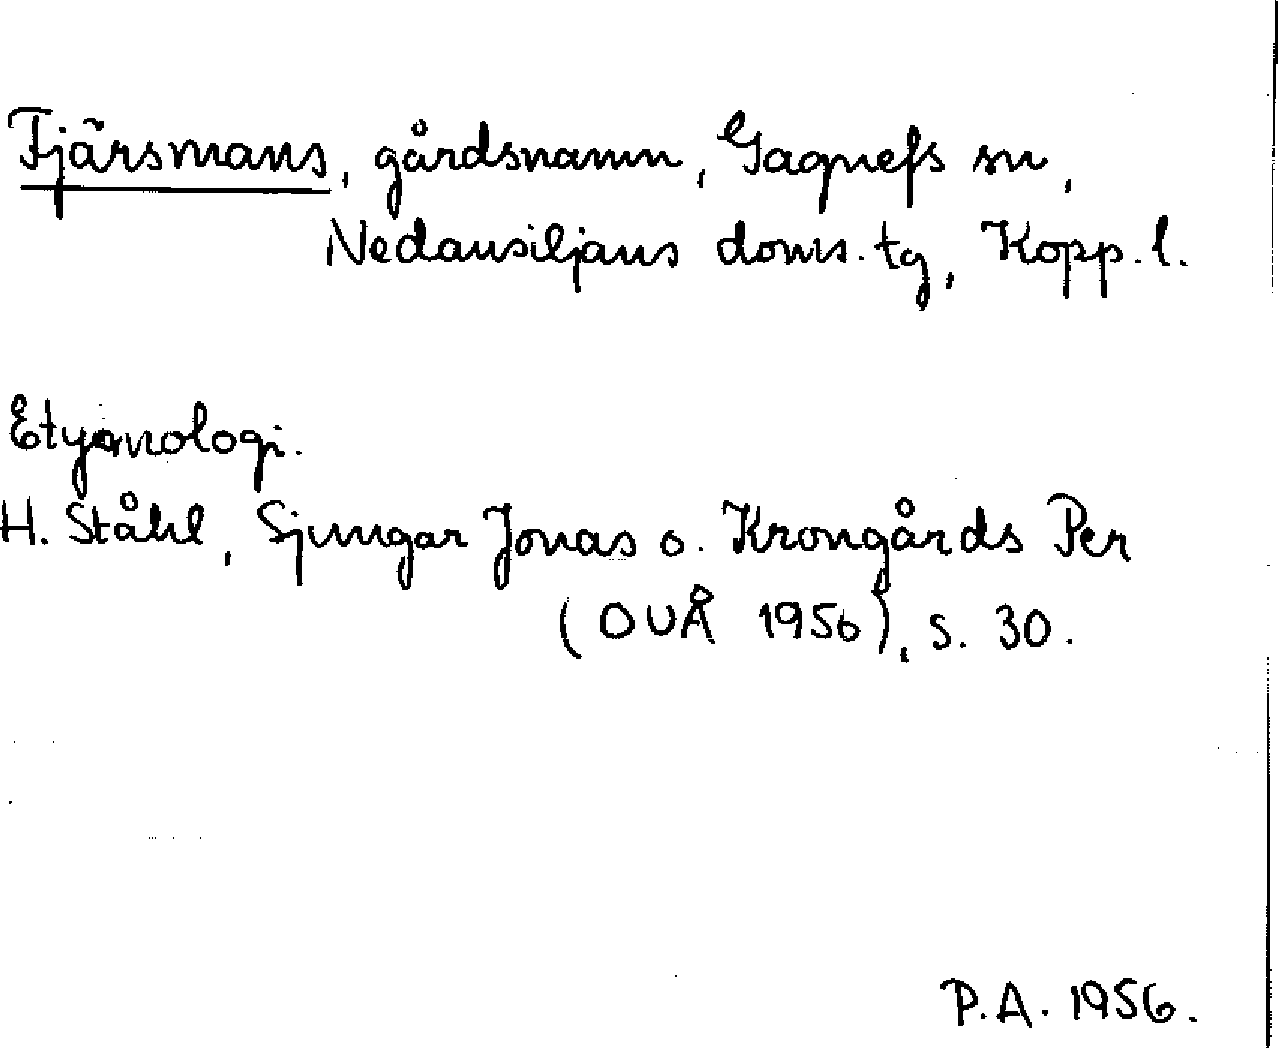 Fjärsmans, gårdsnamn, Gagnefs sn,
Nedansiljans doms. tg, Kopp. l.
Etymologi.
H. Ståhl, Sjungar Jonas o. Krongårds Per
(OUÅ 1956), s. 30.
P.A. 1956.